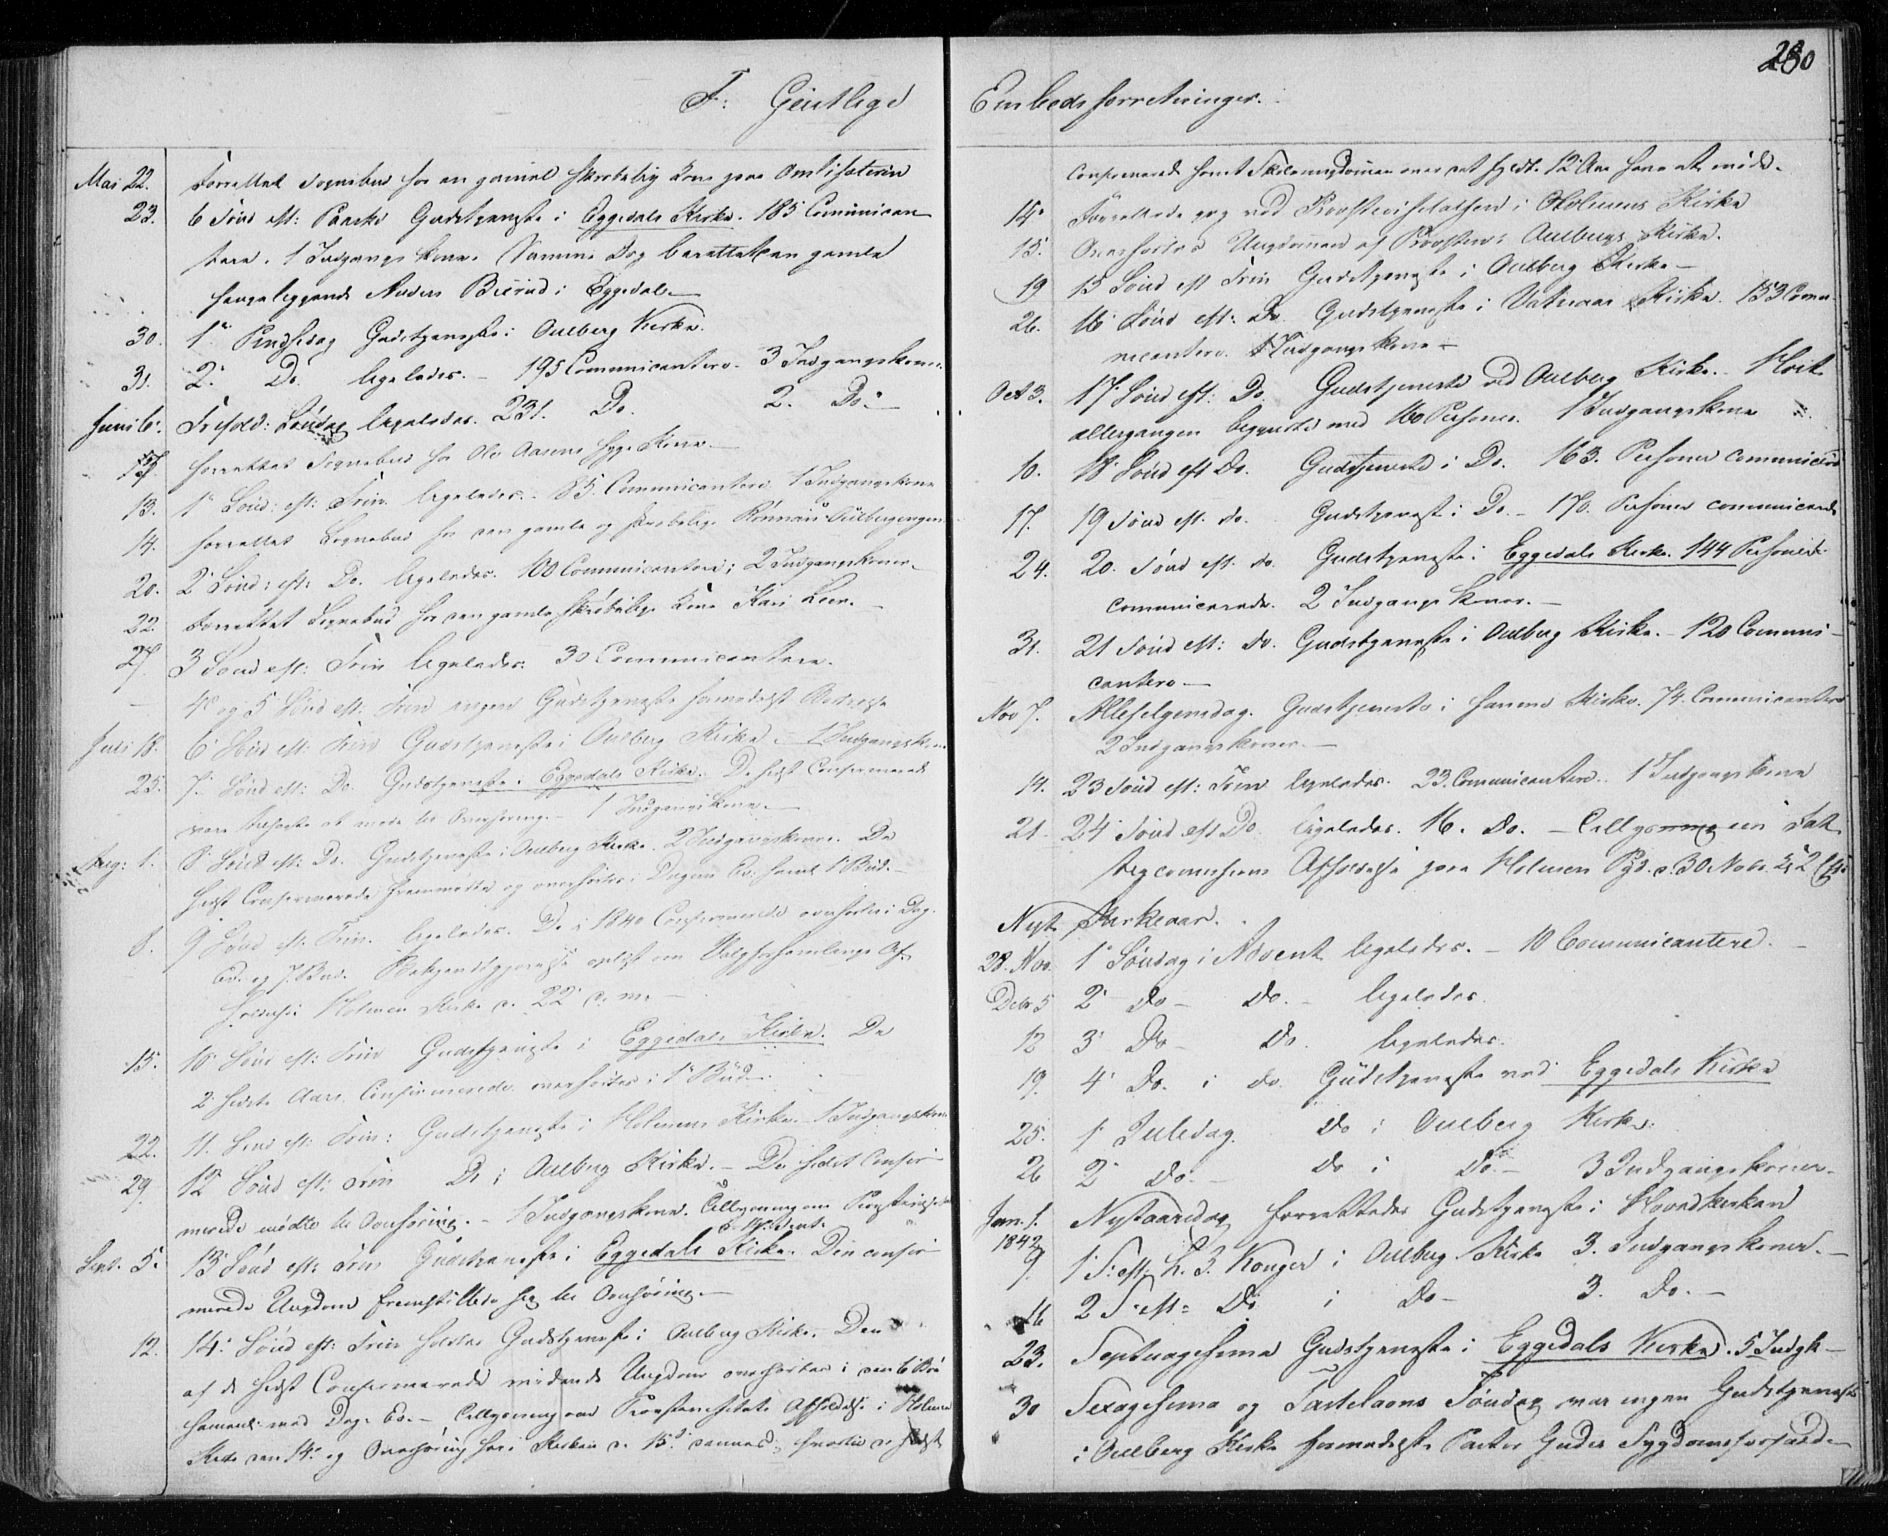 230
F: Geistlige Embedsforretninger.
Mai 22. Forrettet Sognebud hos en gammel skrøbelig Kone paa
23. 6 Sønd eft: Paaske Gudstjeneste i Eggedals Kirke. 185 Communican
tere. 1 Indgangskone. Samme Dag berettet den gamle
sengeliggende Anders i Eggedal.
30. 1ste Pindsedag Gudstjeneste i Oulberg Kirke.
31. 2. Do. ligeledes. – 195 Communicantere. 3 Indgangskoner.
Juni 6. Trefold: Søndag ligeledes. 231. Do. 2. Do. –
forrettet Sognebud hos Ole Aasens syge Kone. –
13. 1 Sønd: eft: Trin. ligeledes. – 85 Communicantere 1 Indgangskone
14. forrettet Sognebud hos den gamle og skrøbelige
20. 2 Sønd: eft: Do. ligeledes. 100 Communicantere; 2 Indgangskoner.
22. Forrettet Sognebud hos den gamle skrøbelige Kone Kari
27. 3 Sønd eft: Trin ligeledes. 30 Communicantere.
– 4de og 5 Sønd eft: Trin ingen Gudstjeneste formedelst
Juli 18. 6 Sønd eft: Trin Gudstjeneste i Oulberg Kirke. – 1 Indgangskone
25. 7. Sønd eft: Do. Gudstjeneste i Eggedals Kirke. De sidst Confirmerede
vare at møde til Overhøring. – 1 Indgangskone. –
Aug: 1. 8 Sønd eft: Do. Gudstjeneste i Oulberg Kirke. 2 Indgangskoner. De
sidst Confirmerede fremmødte og overhørtes i Dagens Ev: samt 1 Bud. –
8. 9 Sønd eft: Trin. ligeledes. De i 1840 Confirmerede overhørtes i Dag.
Ev. og 7. Bud. om Valgforsamlings Af
i Holmen Kirke d. 22 d. M. –
15. 10 Sønd eft: Trin Gudstjeneste i Eggedals Kirke. De
2 sidste Aars Confirmerede overhørtes i 1ste Bud.
22. 11. Sønd eft: Trin: Gudstjeneste i Holmens Kirke. – 1 Indgangskone
29. 12 Sønd eft: Trin Do i Oulberg Kirke. – De sidst Confir
merede mødte til Overhøring. – 1 Indgangskone. Tillysning om
Sept. 5. 13 Sønd eft: Trin Gudstjeneste i Eggedals Kirke. Den confir
merede Ungdom fremstillede sig til Overhøring. –
12. 14. Sønd eft: Trin holdtes Gudstjeneste i Oulberg Kirke. Den
af de sidst Confirmerede mødende Ungdom overhørtes i den 6 Bøn
samt med Dag. Ev. – Tillysning om Afholdelse i Holmen
Kirke den 14de og Overhøring her i Kirken d. 15. sammes;
confirmerede samt Skoleungdommen over et fyldt 12 Aar have at møde.
14. Forrettede jeg ved i Holmens Kirke
15. Overhørtes Ungdommen af Provsten i Oulbergs Kirke.
19 15 Sønd eft Trin Gudstjeneste i Oulberg Kirke –
26. 16 Sønd eft: Do. Gudstjeneste i Kirke. 153 Commu
nicantere. 1 Indgangskone –
Oct 3. 17. Sønd eft: Do. Gudstjeneste ved Oulberg Kirke. – Høst
altergangen begyndte med 160 Personer. 1 Indgangskone
10. 18 Sønd eft Do. Gudstjeneste i Do. 163. Personer
17. 19 Sønd eft. do. Gudstjeneste i Do. – 170. Personer
24. 20. Sønd eft. do. Gudstjeneste i Eggedals Kirke. 144 Personer
communicerede. 2 Indgangskoner. –
31. 21 Sønd eft: do. Gudstjeneste i Oulberg Kirke. – 120 Communi–
cantere –
Nov 7. Allehelgensdag. Gudstjeneste i samme Kirke. 74. Communicantere
2 Indgangskoner. –
14. 23 Sønd eft: Trin ligeledes. 23. Communicantere. 1 Indgangskone
21. 24 Sønd eft Do. ligeledes. 16. do. – Tillysning om Fat
tigcommissions Afholdelse paa Holmen d. 30 Nobr.
Nyt Kirkeaar.
28. Nov. 1 Søndag i Advent ligeledes. – 10 Communicantere. –
Debr 5 2 do – do. – ligeledes.
12 3 Do – Do. ligeledes.
19. 4 Do. i do. Gudstjeneste ved Eggedals Kirke
25. 1 Juledag. Do i Oulberg Kirke.
26 2 do. – Do i Do. – 3 Indgangskoner.
Jan. 1. Nytaarsdag forrettedes Gudstjeneste i Hovedkirken
1842
9. 1 S: eft: h. 3. Konger i Oulberg Kirke 3. Indgangskoner. –
16 2 S. eft: Do i Do – 3. Do. –
23. Septuagesima Gudstjeneste i Eggedals Kirke. 5 Indgk –
30 Sexagesima og Fastelavns Søndag var ingen Gudstjeneste
i Oulberg Kirke formedelst Pastor Sygdomsforfald –